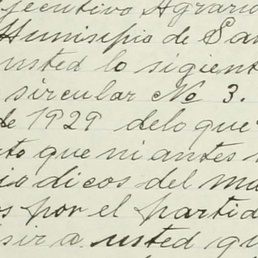 ejecutivo Agrario
Munisipio de San
usted lo sigient
sircular No 3.
de 1929 delo que
to que ni antes
iodicos del mu
os por el partid
sir a usted qu